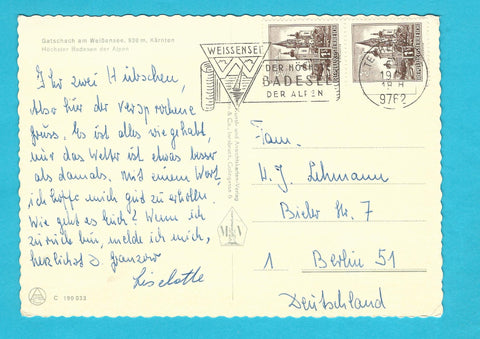 Gatschach am Weißensee, 930 m, Kärnten
Höchster Badesee der Alpen
Ihr zwei Hübschen,
Also hier der versprochene
Gruss. Es ist alles wie gehabt,
nur das Wetter ist etwas besser
als damals. Mit einem Wort,
ich hoffe mich gut zu erholen.
Wie geht es Euch? Wenn ich
zurück bin, melde ich mich,
herzlichst
Liselotte
C 199 033
WEISSENSEE
DER HÖCHSTE
BADESEE
DER ALPEN
9762
Fam.
H. J. Lehmann
Bieler Str. 7
1 Berlin 51
Deutschland